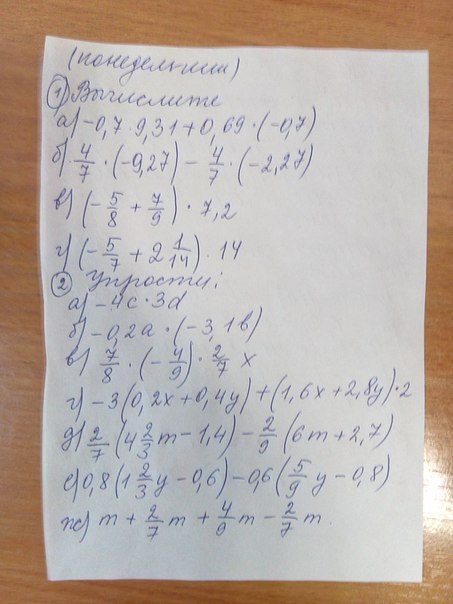 (понедельник)
① Вычислите
а) -0,7 · 9,31 + 0,69 · (-0,7)
б) 4/7 · (-9,27) - 4/7 · (-2,27)
в) (-5/8 + 7/9) · 7,2
г) (-5/7 + 2 1/14) · 14
② Упрости;
а) -4c · 3d
б) -0,2a · (-3,1b)
в) 7/8 · (-4/9) · 2/7 x
г) -3(0,2x+0,4y) + (1,6x+2,8y) · 2
д) 2/7 (4 2/3 m - 1,4) - 2/9 (6m + 2,7)
е) 0,8(1 2/3 y - 0,6) - 0,6(5/9 y - 0,8)
ж) m + 2/7 m + 4/9 m - 2/7 m.